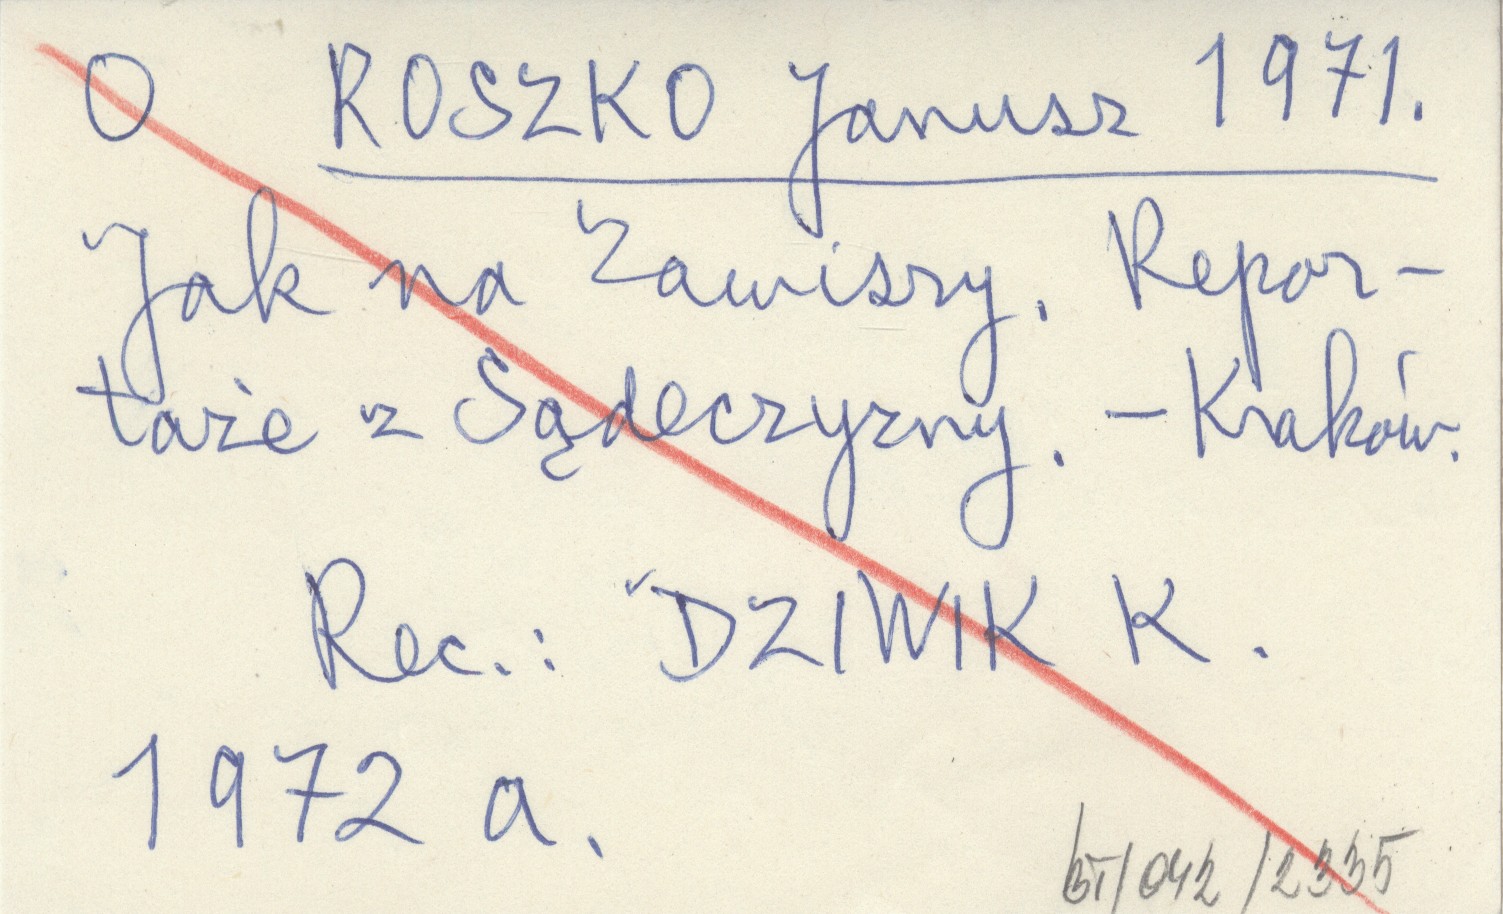 O ROSZKO Janusz 1971.
Jak na Zawiszy. Repor-
taże z Sądeczyzny. - Kraków.
Rec.: DZIWIK K.
1972 a.
/042/2335